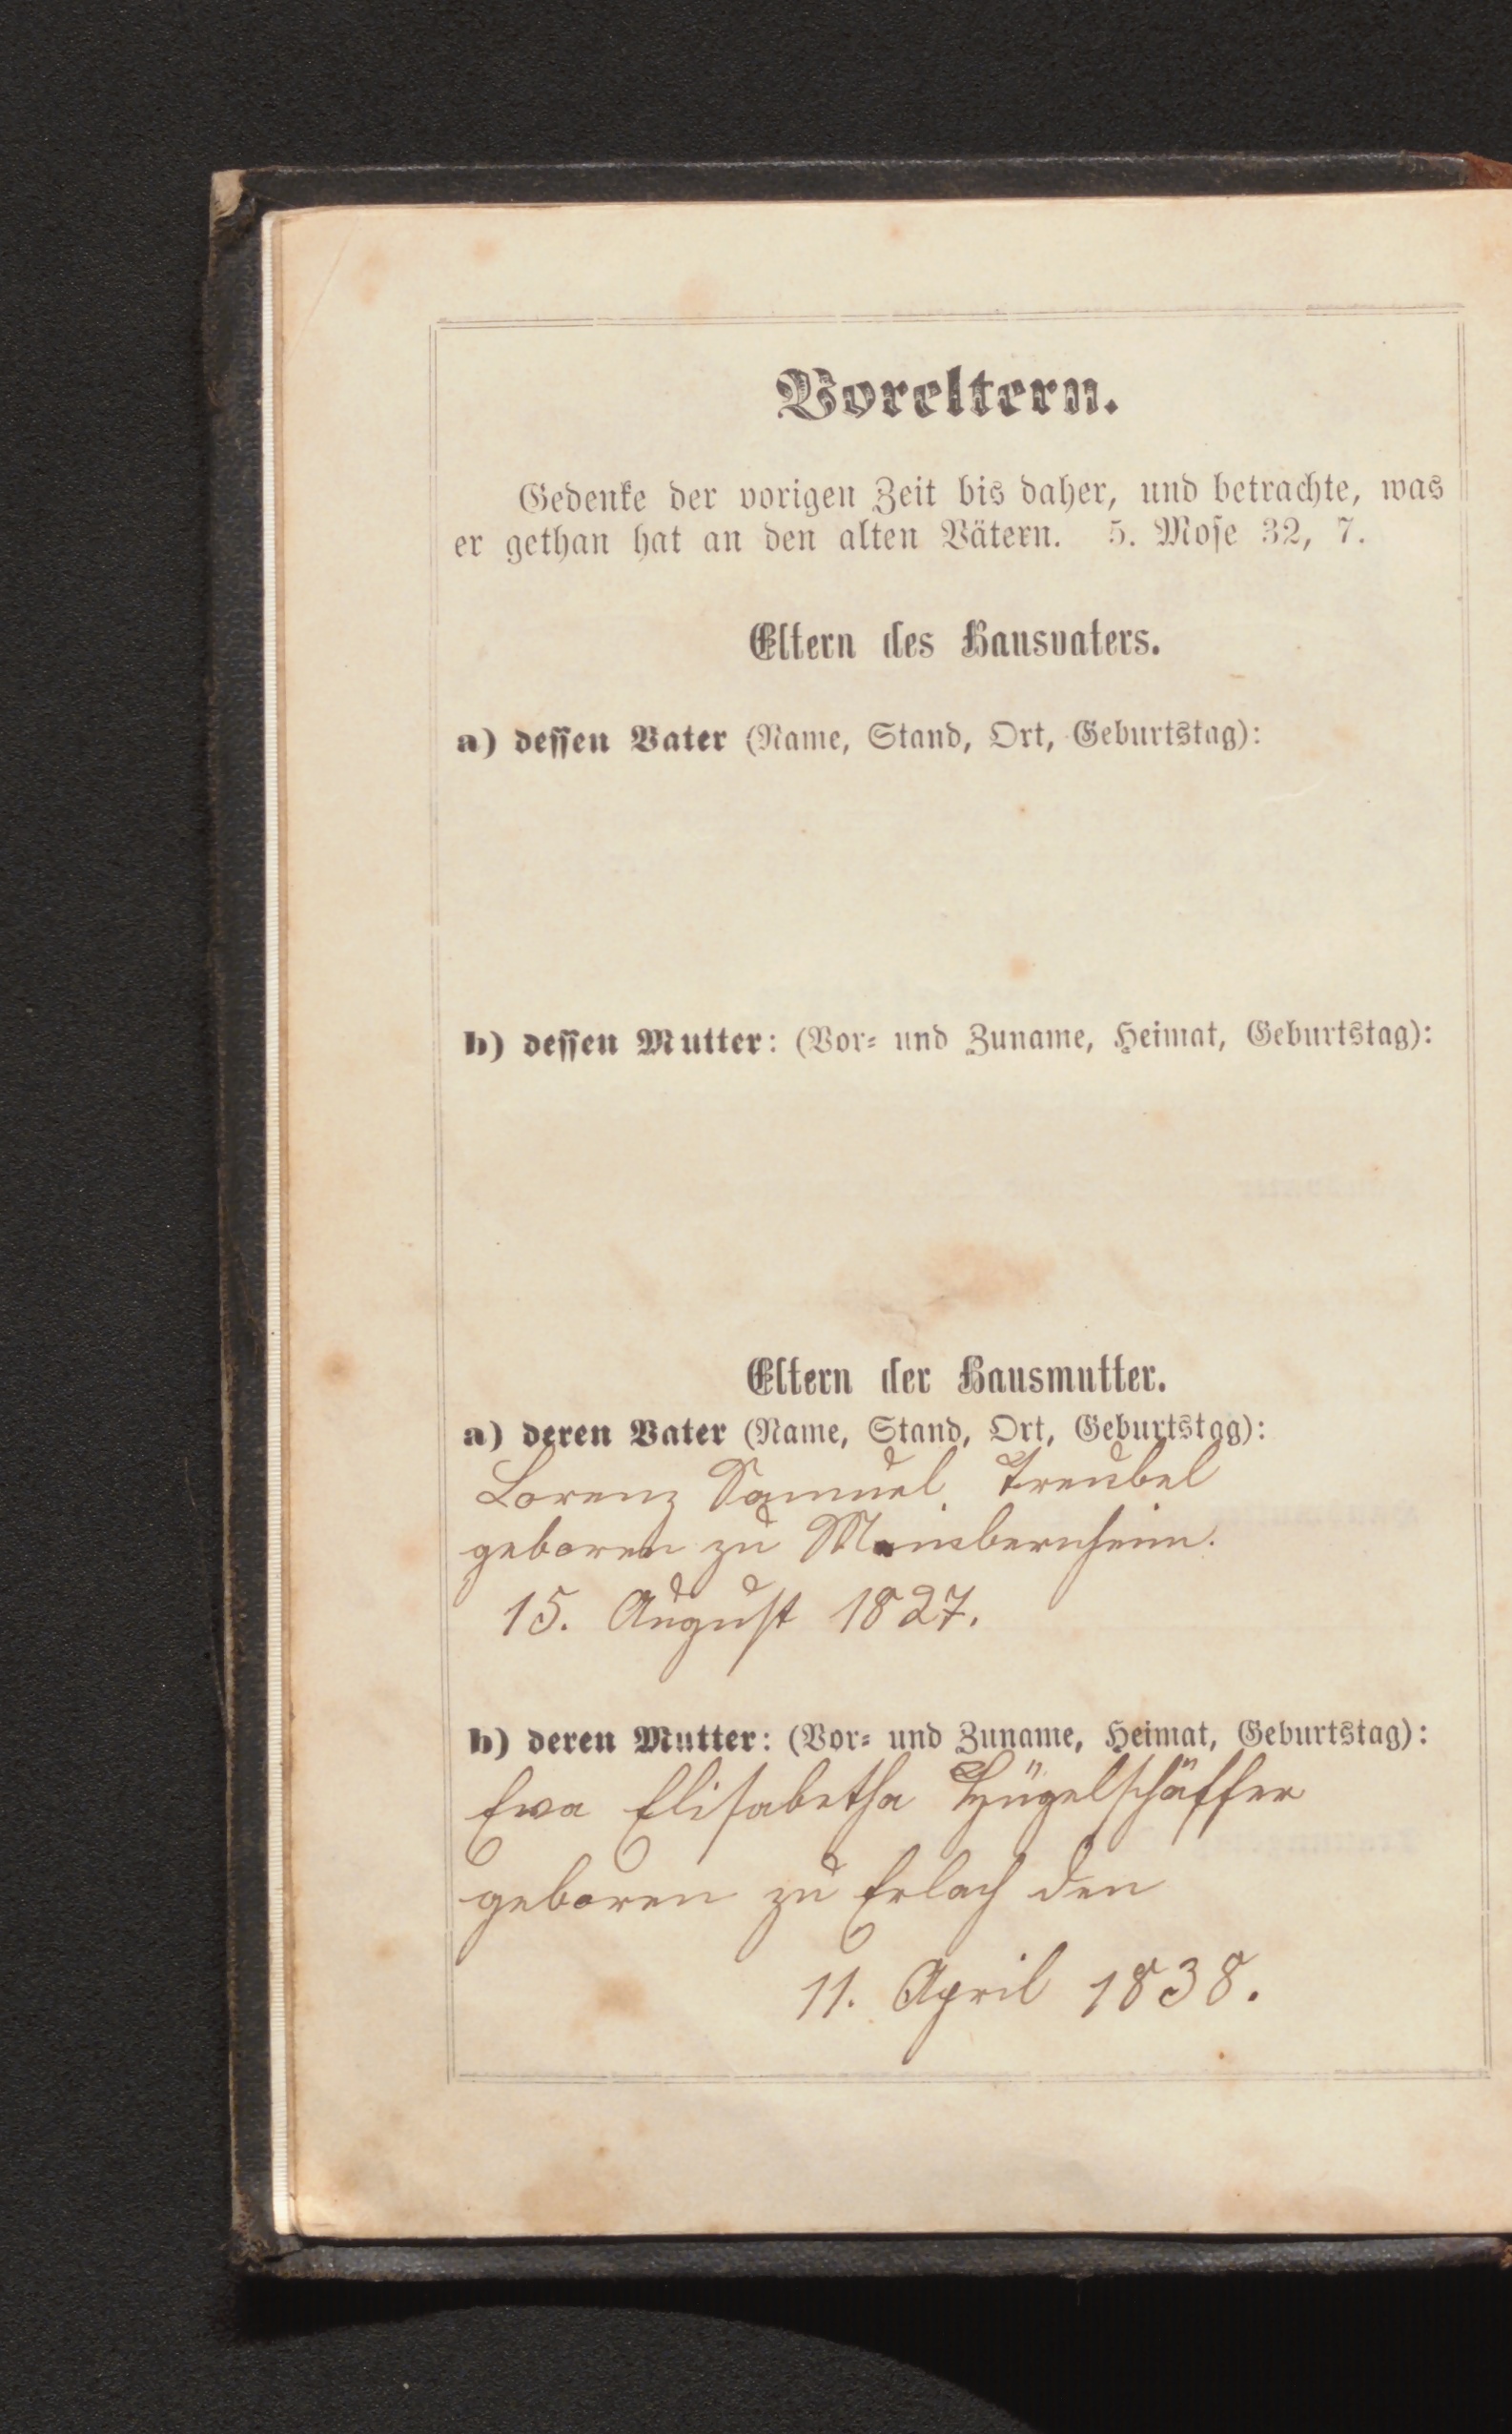 Voreltern.
Gedenke der vorigen Zeit bis daher, und betrachte, was
er gethan hat an den alten Vätern. 5. Mose 32, 7.
Eltern des Hausvaters.
a) dessen Vater (Name, Stand, Ort, Geburtstag):
b) dessen Mutter: (Vor- und Zuname, Heimat, Geburtstag):
Eltern der Hausmutter.
a) deren Vater (Name, Stand, Ort, Geburtstag):
Lorenz Samuel Treubel
geboren zu Mainbernheim.
15. August 1827.
b) deren Mutter: (Vor- und Zuname, Heimat, Geburtstag):
Eva Elisabetha Hügelschäffer
geboren zu Erlach den
11. April 1838.